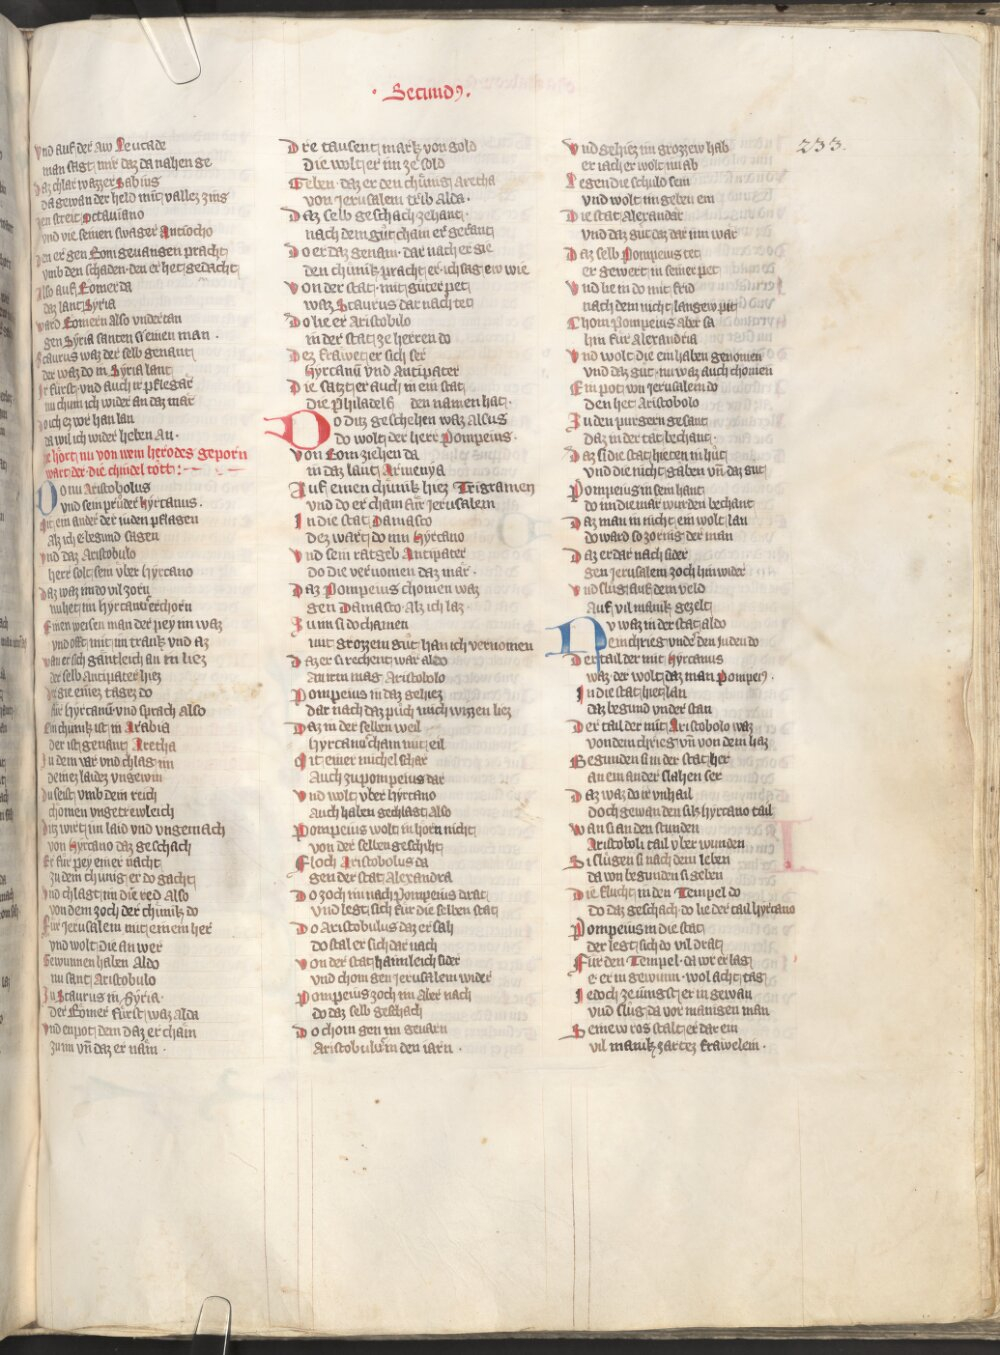 · Secund9 ·
233.
Vnd auf der aw Leucade
man sagt mir daz da nahen ge
Daz chlar wazzer Sabius
da gewan der held mit vallez zins
Den streit Octauiano
vnd vie seinen swager Antiocho
Den er gen Rom geuangen pracht
vmb den schaden den er het gedacht
Also auf Romer da
daz lant Syria
Ward Romern also vndertan
gen Syria santen si einen man ·
Scaurus waz der selb genant
der waz do in Syria lant
Ir fürst vnd auch ir pflegar
nu chum ich wider an daz mar
Do ich ez vor han lan
da wil ich wider heben an ·
Ie hört nu von wem herodes geporn
wart der die chindel tött : ~ ~
Do nu Aristobolus
vnd sein prüder hyrcanus .
Mit ein ander der iuden pflagen
Alz ich e begund sagen
Vnd daz Aristobulo
herr solt sein vber hyrcano
Daz waz im do vil zorn
nu het im hyrcanus erchorn
Einen weisen man der pey im waz
vnd offt mit im trank vnd az
Wan er sich gäntleich an in liez
der selb Antipater hiez
Der gie eines tages do
für hyrcanum vnd sprach also
Ein chünik ist in Arabia
der ist genant Arecha
Zu dem var vnd chlag im
deinez laidez vngewin
Du seist vmb dein reich
chomen vngetrewleich
Ditz wirt im laid vnd vngemach
von hyrcano daz geschach
Er für pey einer nacht
zu dem chunig er do gacht
Vnd chlagt im die red also
von dem zoch der chünik do
Für Jerusalem mit einem her
vnd wolt die an wer
Gewunnen haben Aldo
nu sant Aristobulo
Zu Scaurus in Syria ·
der Römer fürst waz alda
Vnd enpot dem daz er cham
zu im vn̄ daz er näm ·
Dre tausent mark von gold
Die wolt er im ze sold
Geben daz er den chünig Arecha
von Jerusalem trib Alda ·
Daz selb geschach zehant
nach dem güt cham er gerant
Do er daz genam · dar nach er gie
den chünik pracht er · ich sag ew wie
Von der stat · mit güter pet
waz Scaurus dar nach tet
Do lie er Aristobilo
in der stat ze herren do
Dez frawet er sich ser
hyrcanū vnd Antipater
Die satzt er auch in ein stat
die Philadelf den namen hat ·
Do ditz geschehen waz alsus
do wolt der herr Pompeius ·
Von Rom ziehen da
in daz lant Armenya
Auf einen chünik hiez Trigramen
vnd do er cham für Jerusalem
In die stat Damasco
dez wart do inn hyrcano
Vnd sein ratgeb Antipater
do die vernomen daz mär ·
Daz Pompeius chomen waz
gen Damasco · Alz ich laz ·
Zu im si do chamen
mit grozzem güt han ich vernomen
Daz er si rechent wär aldo
An irm mag Aristobolo
Pompeius in daz gehiez
dar nach daz püch mich wizzen liez
Daz in der selben weil
hyrcanū cham mit eil
Mit einer michel schar
Auch zu pompeius dar
Vnd wolt vber hyrcano
Auch haben gechlagt also
Pompeius wolt in horn nicht
von der selben geschiht
Floch Aristobolus da
gen der stat Alexandra
Do zoch im nach Pompeius drat
Vnd legt sich für die selben stat
Do Aristobulus daz er sah
do stal er sich dar nach
Von der stat hainleich sider
vnd chom gen Jerusalem wider
Pompeius zoch im Aber nach
do daz selb geschach
Do chom gen im geuarn
Aristobulū in den iarn ·
Vnd gehiez im grozzew hab
er iach er wolt im ab
Legen die schuld sein
vnd wolt im geben ein
Die stat Alexandar
vnd daz güt daz dar inn wär
Daz selb Pompeius tet
er gewert in seiner pet
Vnd lie in do mit frid
nach dem nicht langew zit
Chom Pompeius aber sa
hin für Alexandria
Vnd wolt die ein haben genomen
vnd daz güt · nu waz auch chomen
Ein pot von Jerusalem do
den het Aristobolo
Zu den purgern gesant
daz in der tat bechant
Daz si die stat hieten in hüt
vnd die nicht gäben vn̄ daz güt
Pompeius in sein hant
do im die mär wurden bechant
Daz man in nicht ein wolt lan
do ward so zornig der man
Daz er dar nach sider
gen Jerusalem zoch hin wider
Vnd slüg auf dem veld
Auf vil manik gezelt
Nv waz in der stat aldo
Ein chrieg vnder den juden do
Der tail der mit hyrcanus
waz der wolt daz man Pompei9 ·
In die stat hiet lan
daz begund vnder stan
Der tail der mit Aristobolo waz
von dem chrieg vn̄ von dem haz
Begunden si in der stat her
an ein ander slahen ser
Daz waz do ir vnhail
doch gewan den sik hyrcano tail
Wan si an den stunden
Aristoboli tail vber wunden
Si slügen si nach dem leben
da von begunden si geben
Die flucht in den Tempel do
do daz geschach do lie der tail hyrcano
Pompeium in die stat
der legt sich do vil drat
Für den Tempel · da vor er lag
e er in gewunn · wol acht tag
Jedoch ze iüngst er in gewan
vnd slüg da vor manigen man
Seinew ros stalt er dar ein
vil manik zartez frawelein ·